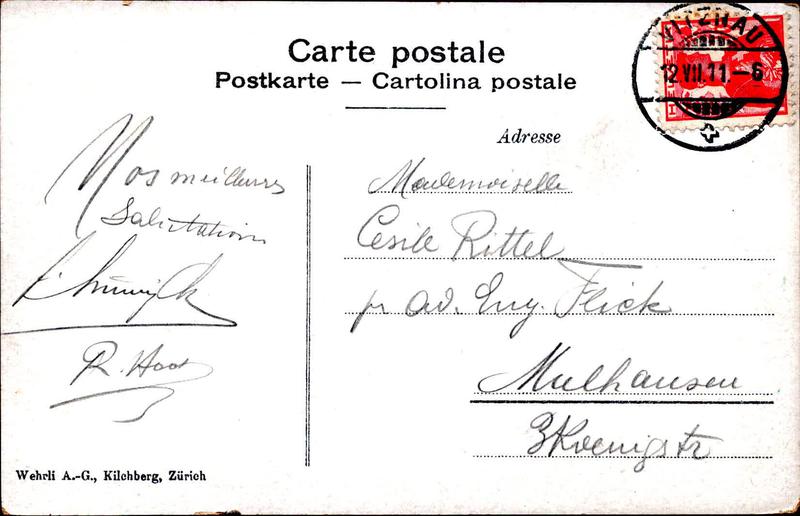 Carte postale
Postkarte — Cartolina postale
VITZNAU
12.VII.11.–6
HELVETIA
Adresse
Nos meilleures
Salutations
R. Haas
Mademoiselle
Cesile Rittel
pr ad. Eug. Flick
Mulhausen
3 Koenigstr
Wehrli A.-G., Kilchberg, Zürich